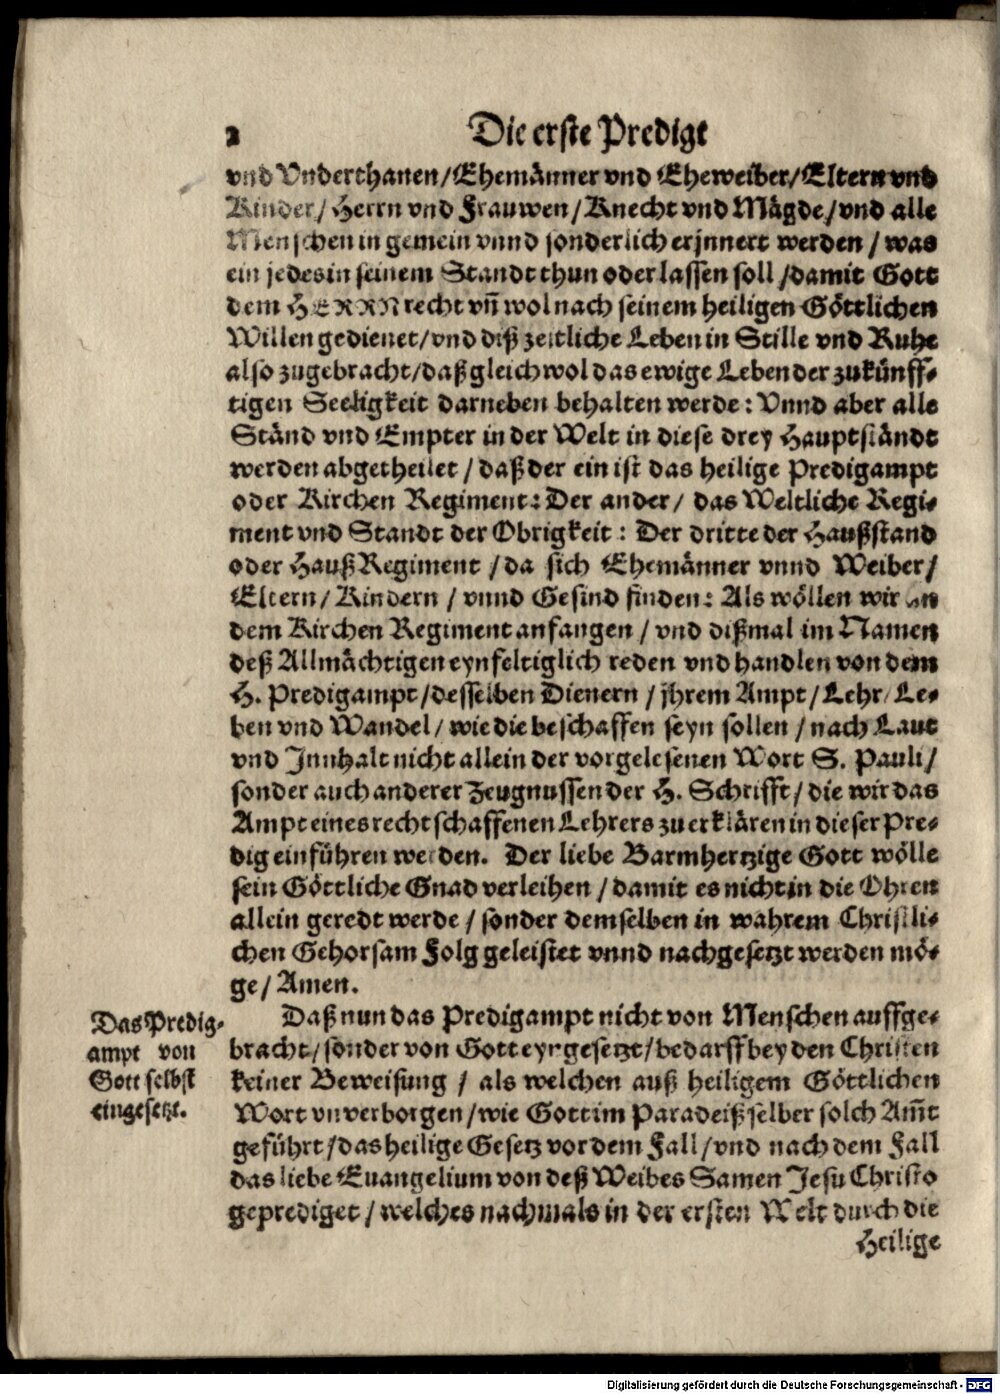 2 Die erste Predigt
vnd Vnderthanen/Ehemänner vnd Eheweiber/Eltern vnd
Kinder/ Herrn vnd Frauwen/Knecht vnd Mägde/vnd alle
Menschen in gemein vnnd sonderlich erjnnert werden / was
ein jedes in seinem Standt thun oder lassen soll /damit Gott
dem HERRN recht vñ wol nach seinem heiligen Göttlichen
Willen gedienet/vnd diß zeitliche Leben in Stille vnd Ruhe
also zugebracht/daß gleichwol das ewige Leben der zukünff-
tigen Seeligkeit darneben behalten werde: Vnnd aber alle
Ständ vnd Empter in der Welt in diese drey Hauptständt
werden abgetheilet / daß der ein ist das heilige Predigampt
oder Kirchen Regiment: Der ander/ das Weltliche Regi-
ment vnd Standt der Obrigkeit: Der dritte der Haußstand
oder Hauß Regiment /da sich Ehemänner vnnd Weiber/
Eltern/ Kindern / vnnd Gesind finden: Als wöllen wir an
dem Kirchen Regiment anfangen / vnd dißmal im Namen
deß Allmächtigen eynfeltiglich reden vnd handlen von dem
H. Predigampt/desselben Dienern / jhrem Ampt/Lehr/Le-
ben vnd Wandel/ wie die beschaffen seyn sollen / nach Laut
vnd Jnnhalt nicht allein der vorgelesenen Wort S. Pauli/
sonder auch anderer Zeugnussen der H. Schrifft/ die wir das
Ampt eines rechtschaffenen Lehrers zu erklären in dieser Pre-
dig einführen werden. Der liebe Barmhertzige Gott wölle
sein Göttliche Gnad verleihen /damit es nicht in die Ohren
allein geredt werde / sonder demselben in wahrem Christli-
chen Gehorsam Folg geleistet vnnd nachgesetzt werden mö-
ge/ Amen.
Das Predig-
ampt von
Gott selbst
eingesetzt.
Daß nun das Predigampt nicht von Menschen auffge-
bracht/sonder von Gott eyngesetzt/bedarff bey den Christen
keiner Beweisung / als welchen auß heiligem Göttlichen
Wort vnverborgen/wie Gott im Paradeiß selber solch Am̃t
geführt/das heilige Gesetz vor dem Fall/vnd nach dem Fall
das liebe Euangelium von deß Weibes Samen Jesu Christo
geprediget/welches nachmals in der ersten Welt durch die
Heilige
Digitalisierung gefördert durch die Deutsche Forschungsgemeinschaft - DFG